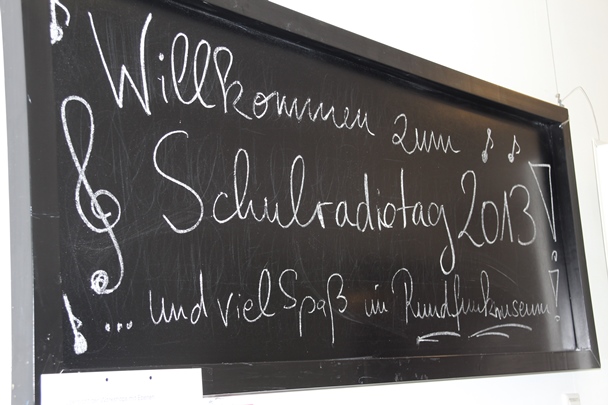 Willkommen zum
Schulradiotag 2013!
... und viel Spaß im Rundfunkmuseum!